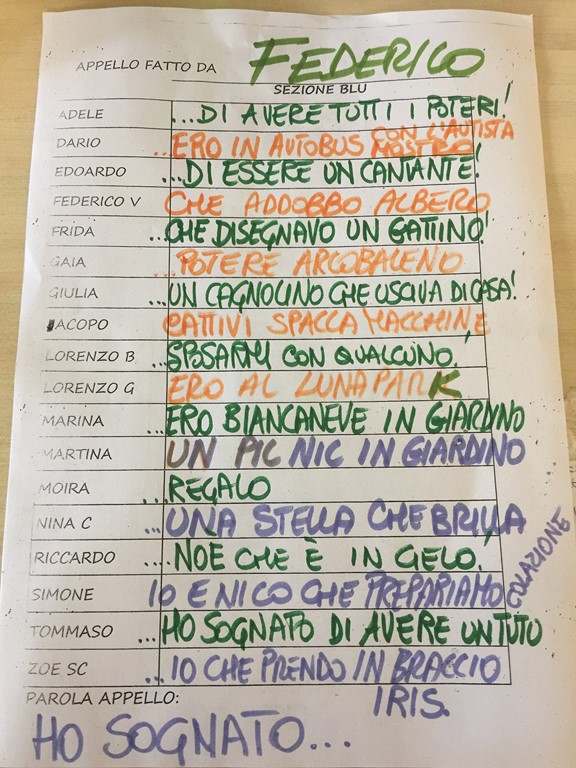 APPELLO FATTO DA FEDERICO
SEZIONE BLU
ADELE ...DI AVERE TUTTI I POTERI!
DARIO ...ERO IN AUTOBUS CON L'AUTISTA MOSTRO!
EDOARDO ...DI ESSERE UN CANTANTE!
FEDERICO V CHE ADDOBBO ALBERO
FRIDA ...CHE DISEGNAVO UN GATTINO!
GAIA ...POTERE ARCOBALENO
GIULIA ...UN CAGNOLINO CHE USCIVA DI CASA!
JACOPO CATTIVI SPACCA MACCHINE
LORENZO B ...SPOSARMI CON QUALCUNO!
LORENZO G ERO AL LUNAPARK
MARINA ...ERO BIANCANEVE IN GIARDINO
MARTINA UN PIC NIC IN GIARDINO
MOIRA ...REGALO
NINA C ...UNA STELLA CHE BRILLA
RICCARDO ...NOE CHE È IN GELO!
SIMONE IO E NICO CHE PREPARIAMO COLAZIONE
TOMMASO ...HO SOGNATO DI AVERE UN TUTÙ
ZOE SC ...IO CHE PRENDO IN BRACCIO IRIS.
PAROLA APPELLO:
HO SOGNATO...